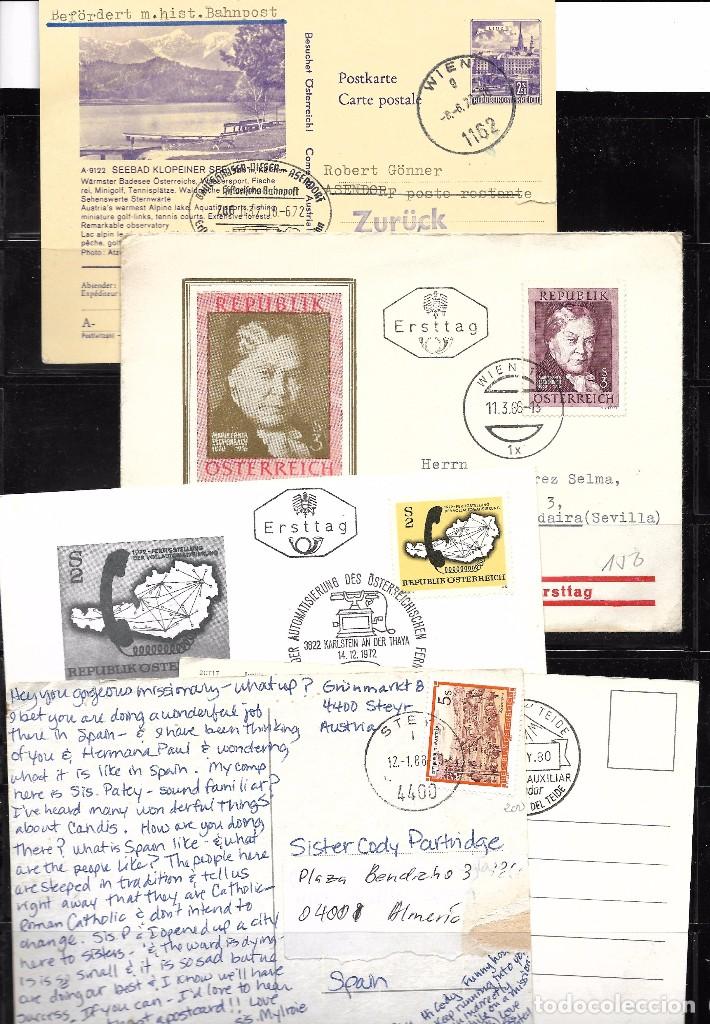 Befördert m.hist.Bahnpost
Besuchet Österreich!
Postkarte
Carte postale
REPUBLIK ÖSTERREICH
WIEN
9
1162
A-9122 SEEBAD KLOPEINER
Wärmster Badesee Österreichs,
rei, Minigolf, Tennisplätze.
Sehenswerte Sternwarte
Austria's warmest Alpine lake. Aquatic sports, fishing
miniature golf-links, tennis courts. Extensive forests.
Remarkable observatory
Lac alpin le
pêche, golf
Photo:
Absender:
Expéditeur
A-
Postleitzahl
Robert Gönner
ASENDORF poste restante
Zurück
REPUBLIK
S3
ÖSTERREICH
Ersttag
REPUBLIK
S3
ÖSTERREICH
WIEN 1
11.3.66-13
1x
Herrn
rez Selma,
3,
daira(Sevilla)
rsttag
Ersttag
S2
1972-FERTIGSTELLUNG
DER VOLLAUTOMATISIERUNG
REPUBLIK ÖSTER
S2
REPUBLIK ÖSTERREICH
DER AUTOMATISIERUNG DES ÖSTERREICHISCHEN FERN
3822 KARLSTEIN AN DER THAYA
14.12.1972
Hey you gorgeous missionary - what up?
I bet you are doing a wonderful job
there in Spain - & I have been thinking
of you & Hermana Paul & wondering
what it is like in Spain. My comp
here is Sis. Patey - sound familiar?
I've heard many wonderful things
about Candis. How are you doing
there? What is Spain like - & what
are the people like? The people here
are steeped in tradition & tell us
right away that they are Catholic -
Roman Catholic & don't intend to
change. Sis. P & I opened up a city
here to sisters - & the ward is dying -
is is so small & it is so sad but we
are doing our best & I know we'll have
success. If you can - I'd love to hear
a postcard!! Love
Sis. Mylroie
Grünmarkt 8
4400 Steyr
Austria
5s
STEYR
1
12.-1.88
4400
Sister Cody Partridge
Plaza Bendzho 3
04001 Almería
Spain
Hi Cody,
keep running into you
on a mission!
Love
TEIDE
80
AUXILIAR
DEL TEIDE
todocoleccion